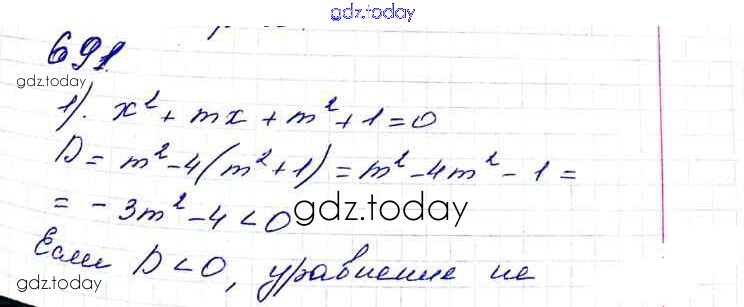 gdz.today
691
gdz.today
1). x² + mx + m² + 1 = 0
D = m² - 4(m² + 1) = m² - 4m² - 1 =
= - 3m² - 4 < 0 gdz.today
Если D < 0, уравнение не
gdz.today